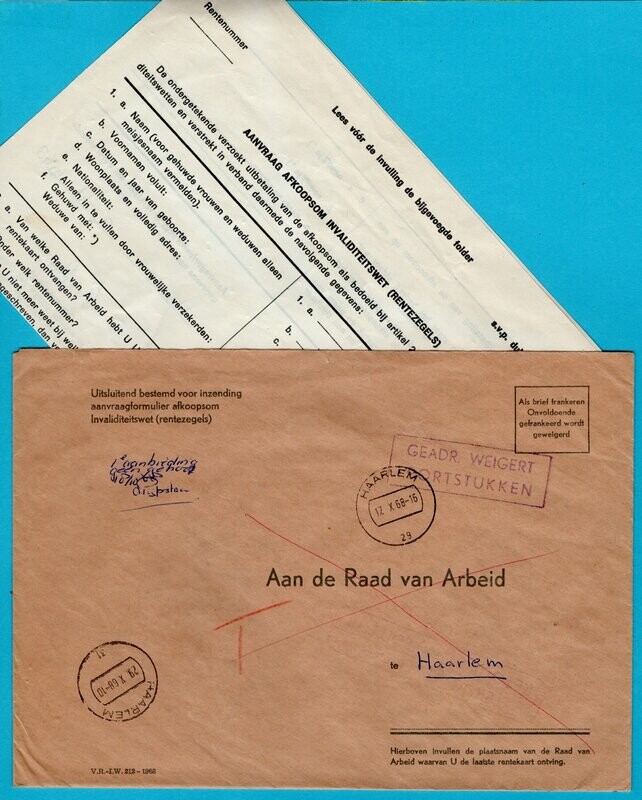 Rentenummer
Lees vóór de invulling de bijgevoegde folder
a.v.p. du
AANVRAAG AFKOOPSOM INVALIDITEITSWET (RENTEZEGELS)
De ondergetekende verzoekt uitbetaling van de afkoopsom als bedoeld bij artikel 2
diteitswetten en verstrekt in verband daarmede de navolgende gegevens:
1. a. Naam (voor gehuwde vrouwen en weduwen alleen
meisjesnaam vermelden).
b. Voornamen voluit:
c. Datum en jaar van geboorte:
d. Woonplaats en volledig adres:
e. Nationaliteit:
f. Alleen in te vullen door vrouwelijke verzekerden:
Gehuwd met: *)
Weduwe van:
1. a.
b.
c.
a. Van welke Raad van Arbeid hebt U U
rentekaart ontvangen?
onder welk rentenummer?
U niet meer weet bij wel
geschreven, dan v
Uitsluitend bestemd voor inzending
aanvraagformulier afkoopsom
Invaliditeitswet (rentezegels)
Als brief frankeren
Onvoldoende
gefrankeerd wordt
geweigerd
1e aanbieding
geen gehoor
GEADR. WEIGERT
ORTSTUKKEN
HAARLEM
17 X 68-16
29
Aan de Raad van Arbeid
te Haarlem
31
29 X 68-10
HAARLEM
Hierboven invullen de plaatsnaam van de Raad van
Arbeid waarvan U de laatste rentekaart ontving.
V.R.-I.W. 212 - 1968